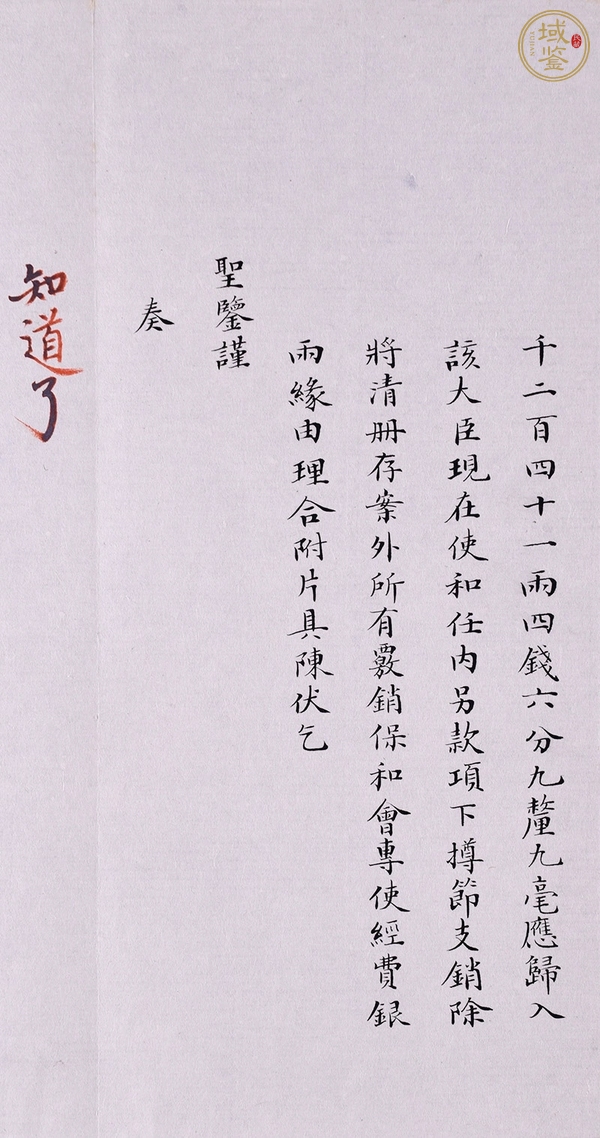 千二百四十一兩四錢六分九釐九毫應歸入
該大臣現在使和任內另款項下撙節支銷除
將清冊存案外所有覈銷保和會專使經費銀
兩緣由理合附片具陳伏乞
聖鑒謹
奏
知道了
域鑒
YUJIAN